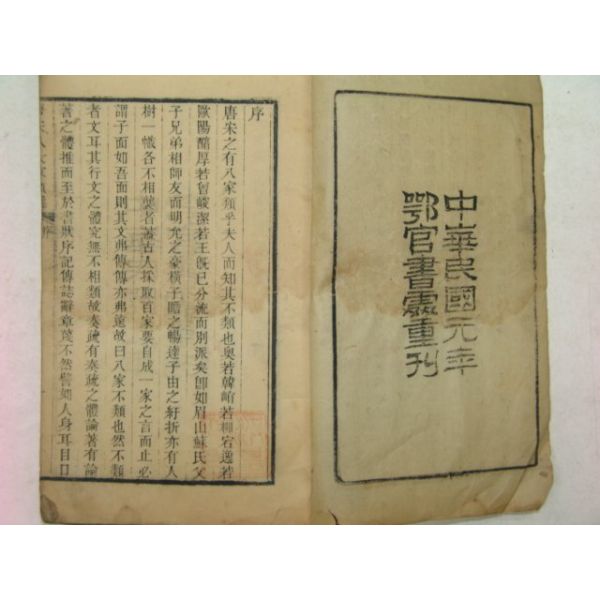 中華民國元年
鄂官書處重刊
序
唐宋之有八家類乎夫人而知其不類也奥若韓峭若柳宕逸若
歐陽醇厚若曾峻潔若王旣已分流而別派矣卽如眉山蘇氏父
子兄弟相師友而明允之豪橫子瞻之暢達子由之紆折亦有人
樹一幟各不相襲者蓋古人採取百家要自成一家之言而止必
謂子面如吾面則其文弗傳傳亦弗遠故曰八家不類也然不類
者文耳其行文之體定無不相類故奏疏有奏疏之體論著有論
著之體推而至於書狀序記傳誌辭章莫不然譬如人身耳目口